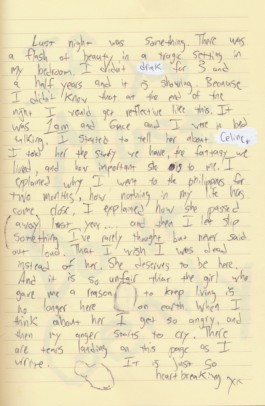 Last night was something. There was
a flash of beauty in a tragic setting in
my bedroom. I didn't drink for 3 and
a half years and it is showing. Because
I didn't know that at the end of the
night I would get reflective like this. It
was 2am and Grace and I were in bed
talking. I started to tell her about Celine,
I told her the story we have, the fantasy we
lived, and how important she is to me. I
explained why I went to the philippines for
two months, how nothing in my life has
come close. I explained how she passed
away last year.... and then I let slip
something I've rarely thought but never said
out loud. That I wish I was dead
instead of her. She deserves to be here.
And it is so unfair that the girl who
gave me a reason to keep living is
no longer here on earth. When I
think about her I get so angry, and
then my anger starts to cry. There
are tears landing on this page as I
write. It is just so
heartbreaking xx